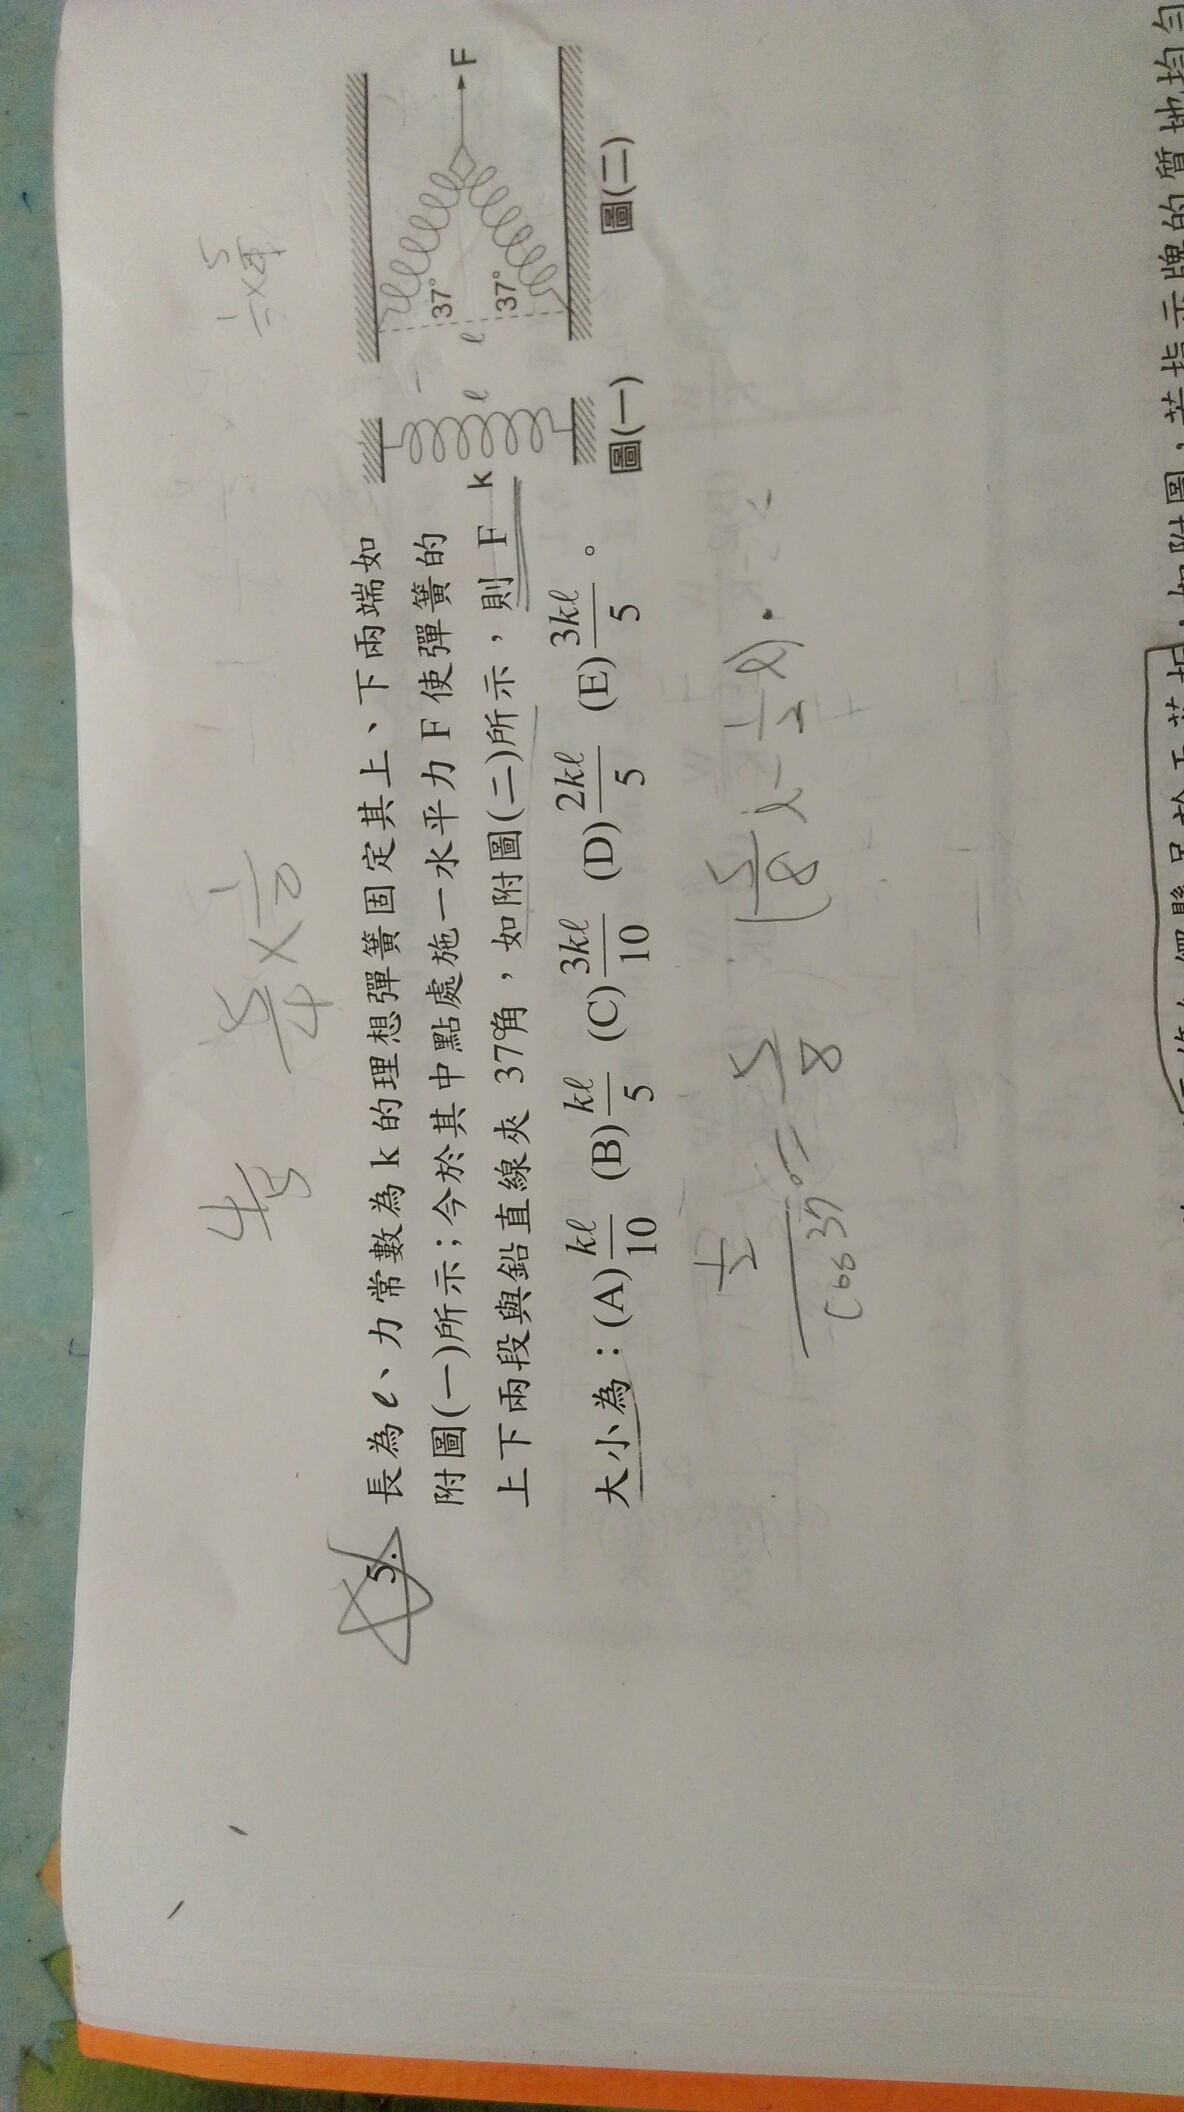 5. 長為ℓ、力常數為 k 的理想彈簧固定其上、下兩端如
附圖(一)所示；今於其中點處施一水平力 F 使彈簧的
上下兩段與鉛直線夾 37°角，如附圖(二)所示，則 F
大小為：(A) kℓ/10 (B) kℓ/5 (C) 3kℓ/10 (D) 2kℓ/5 (E) 3kℓ/5。
k
ℓ
圖(一)
ℓ
37°
37°
F
圖(二)
4/5
5/4 × 1/2
1/2 × 5/4
1/2 / cos37° = 5/8
(5/8 ℓ - 1/2 ℓ).